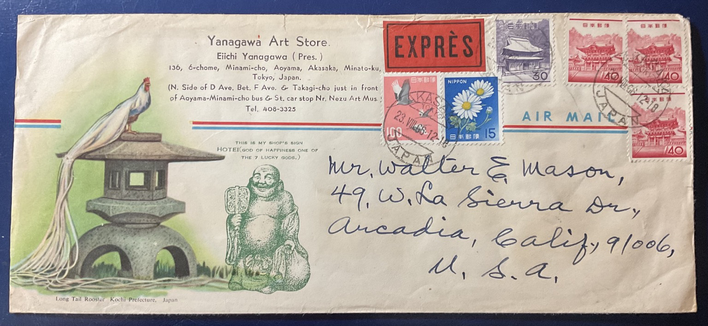 Yanagawa Art Store.
Eiichi Yanagawa (Pres.)
136, 6-chome, Minami-cho, Aoyama, Akasaka, Minato-ku,
Tokyo, Japan.
(N. Side of D Ave. Bet. F Ave. & Takagi-cho just in front
of Aoyama-Minami-cho bus & St. car stop Nr. Nezu Art Mus.)
Tel. 408-3325
EXPRÈS
日本郵便
30
日本郵便
40
日本郵便
40
日本郵便
40
日本郵便
100
NIPPON
日本郵便
15
JAPAN
JAPAN
AIR MAIL
THIS IS MY SHOP'S SIGN
HOTEI (GOD OF HAPPINESS ONE OF
THE 7 LUCKY GODS.)
Mr. Walter E. Mason,
49, W. La Sierra Dr.,
Arcadia, Calif., 91006,
U. S. A.
Long Tail Rooster Kochi Prefecture, Japan